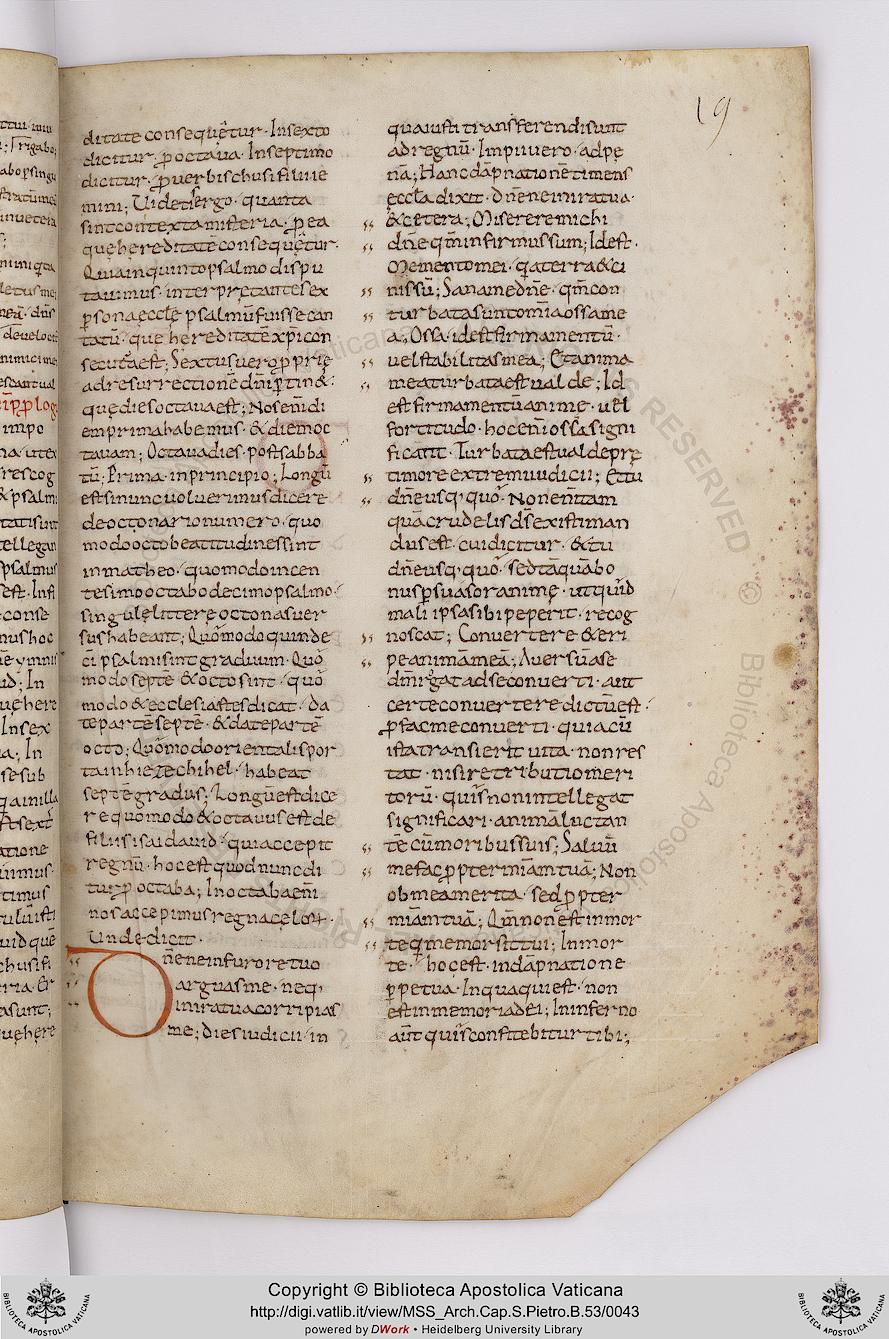 19
ditate consequẽtur · In sexto
dicitur · ꝓ octaua · In septimo
dicitur · ꝓ uerbis chusi filii ie
mini ; Uidetis ergo · quanta
sint contexta misteria · ꝑ ea
que hereditatẽ consequẽtur ·
Quia in quinto psalmo dispu
tauimus · interpretantes ex
ꝑsona eccłe psalmũ fuisse can
tatũ · que hereditatẽ xp̃i con
secuta est ; Sextus uero ꝓprie
ad resurrectionẽ dñi ꝑtin& ·
que dies octaua est ; Nos eñ idi
em prima habemus · & diẽ oc
tauam ; Octaua dies · post sabba
tũ · Prima · in principio ; Longũ
est si nunc uoluerimus dicere
de octonario numero · quo
modo octo beatitudines sint
in matheo · quomodo in cen
tesimo octabo decimo psalmo ·
singule littere octonas uer
sus habeant ; Quõmodo quinde
cĩ psalmi sint graduum · Quo
modo septẽ & octo sint · quo
modo & ecclesiastes dicat · da
te partẽ septẽ · & date partẽ
octo ; Quõmodo orientalis por
ta in hiezechihel · habeat
septẽ gradus ; Longũ est dice
re quomodo & octauus est de
filiis isai dauid · qui accepit
regnũ · hoc est quod nunc di
tur ꝓ octaba ; In octaba eñi
nos accepimus regna celor ·
Unde dicit ·
Dñe ne in furore tuo
arguas me · neq;
in ira tua corripias
me ; dies iudicii · in
qua iusti transferendi sunt
ad regnũ · Impii uero · ad pe
nã ; Hanc dãpnationẽ timens
eccła dixit · dñe ne in ira tua ·
& cetera ; Miserere michi
dñe qm̃ infirmus sum ; Id est ·
Memento mei · qa terra & ci
nis sũ ; Sana me dñe · qm̃ con
turbata sunt om̃ia ossa me
a ; Ossa · id est firmamentũ ·
uel stabilitas mea ; Et anima
mea turbata est ualde ; Id
est firmamentũ anime · uel
fortitudo · hoc eñ ossa signi
ficant · Turbata est ualde pre
timore extremi iudicii ; Et tu
dñe usq; quo · Non eñ tam
quã crudelis ds̃ existiman
dus est · cui dicitur · & tu
dñe usq; quo · sed tãquã bo
nus ꝑsuasor anime · ut quid
mali ipsa sibi peperit · recog
noscat ; Conuertere & eri
pe animã meã ; Auersũ a se
dñm rogat ad se conuerti · aut
certe conuertere dictũ est ·
ꝓ fac me conuerti · quia cũ
ista transierit uita · non res
tat · nisi retributio meri
torũ · quis non intellegat
significari · animã luctan
tẽ cũ moribus suis ; Saluũ
me fac ꝓpter miam̃ tuã ; Non
ob mea merita · sed ꝓpter
miam̃ tuã ; Qm̃ non est in mor
te q memor sit tui ; In mor
te · hoc est · in dãpnatione
ꝑpetua · In qua qui est · non
est in memoria dei ; In inferno
aut̃ quis confitebitur tibi ;
Copyright © Biblioteca Apostolica Vaticana
http://digi.vatlib.it/view/MSS_Arch.Cap.S.Pietro.B.53/0043
powered by DWork • Heidelberg University Library
BIBLIOTECA APOSTOLICA VATICANA
BIBLIOTECA APOSTOLICA VATICANA